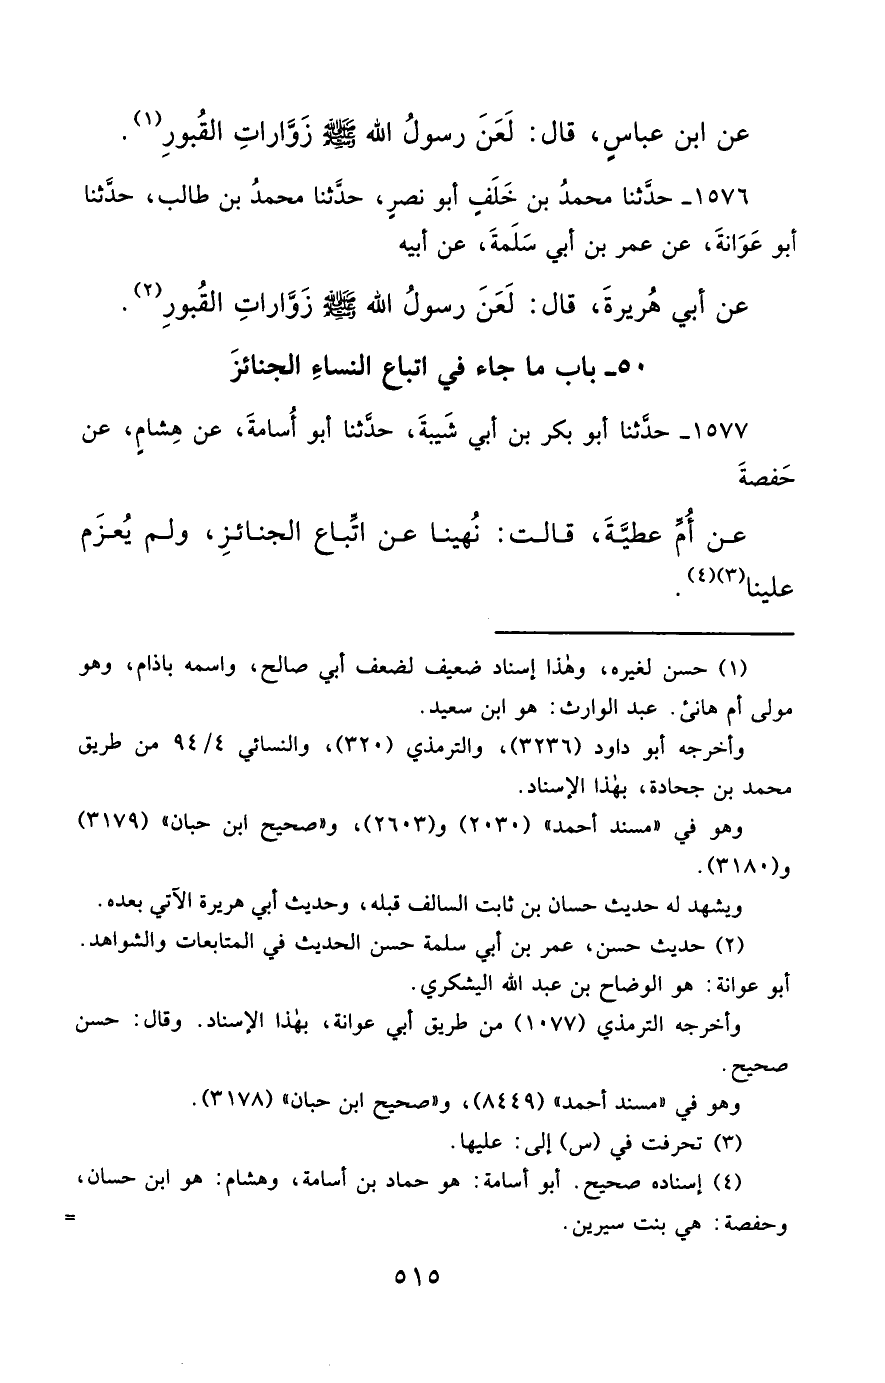 عن ابن عباسٍ، قال: لَعَنَ رسولُ الله ﷺ زَوَّاراتِ القُبورِ(١).
١٥٧٦ـ حدَّثنا محمدُ بن خَلَفٍ أبو نصرٍ، حدَّثنا محمدُ بن طالب، حدَّثنا
أبو عَوَانةَ، عن عمر بن أبي سَلَمةَ، عن أبيه
عن أبي هُريرةَ، قال: لَعَنَ رسولُ الله ﷺ زَوَّاراتِ القُبورِ(٢).
٥٠ـ باب ما جاء في اتباع النساءِ الجنائزَ
١٥٧٧ـ حدَّثنا أبو بكر بن أبي شَيبةَ، حدَّثنا أبو أُسامةَ، عن هِشامٍ، عن
حَفصةَ
عن أُمِّ عطيَّةَ، قالت: نُهينا عن اتِّباع الجنائزِ، ولم يُعزَم
علينا(٣)(٤).
(١) حسن لغيره، وهٰذا إسناد ضعيف لضعف أبي صالح، واسمه باذام، وهو
مولى أم هانئ. عبد الوارث: هو ابن سعيد.
وأخرجه أبو داود (٣٢٣٦)، والترمذي (٣٢٠)، والنسائي ٤/ ٩٤ من طريق
محمد بن جحادة، بهٰذا الإسناد.
وهو في «مسند أحمد» (٢٠٣٠) و(٢٦٠٣)، و«صحيح ابن حبان» (٣١٧٩)
و(٣١٨٠).
ويشهد له حديث حسان بن ثابت السالف قبله، وحديث أبي هريرة الآتي بعده.
(٢) حديث حسن، عمر بن أبي سلمة حسن الحديث في المتابعات والشواهد.
أبو عوانة: هو الوضاح بن عبد الله اليشكري.
وأخرجه الترمذي (١٠٧٧) من طريق أبي عوانة، بهٰذا الإسناد. وقال: حسن
صحيح.
وهو في «مسند أحمد» (٨٤٤٩)، و«صحيح ابن حبان» (٣١٧٨).
(٣) تحرفت في (س) إلى: عليها.
(٤) إسناده صحيح. أبو أسامة: هو حماد بن أسامة، وهشام: هو ابن حسان،
وحفصة: هي بنت سيرين. =
٥١٥